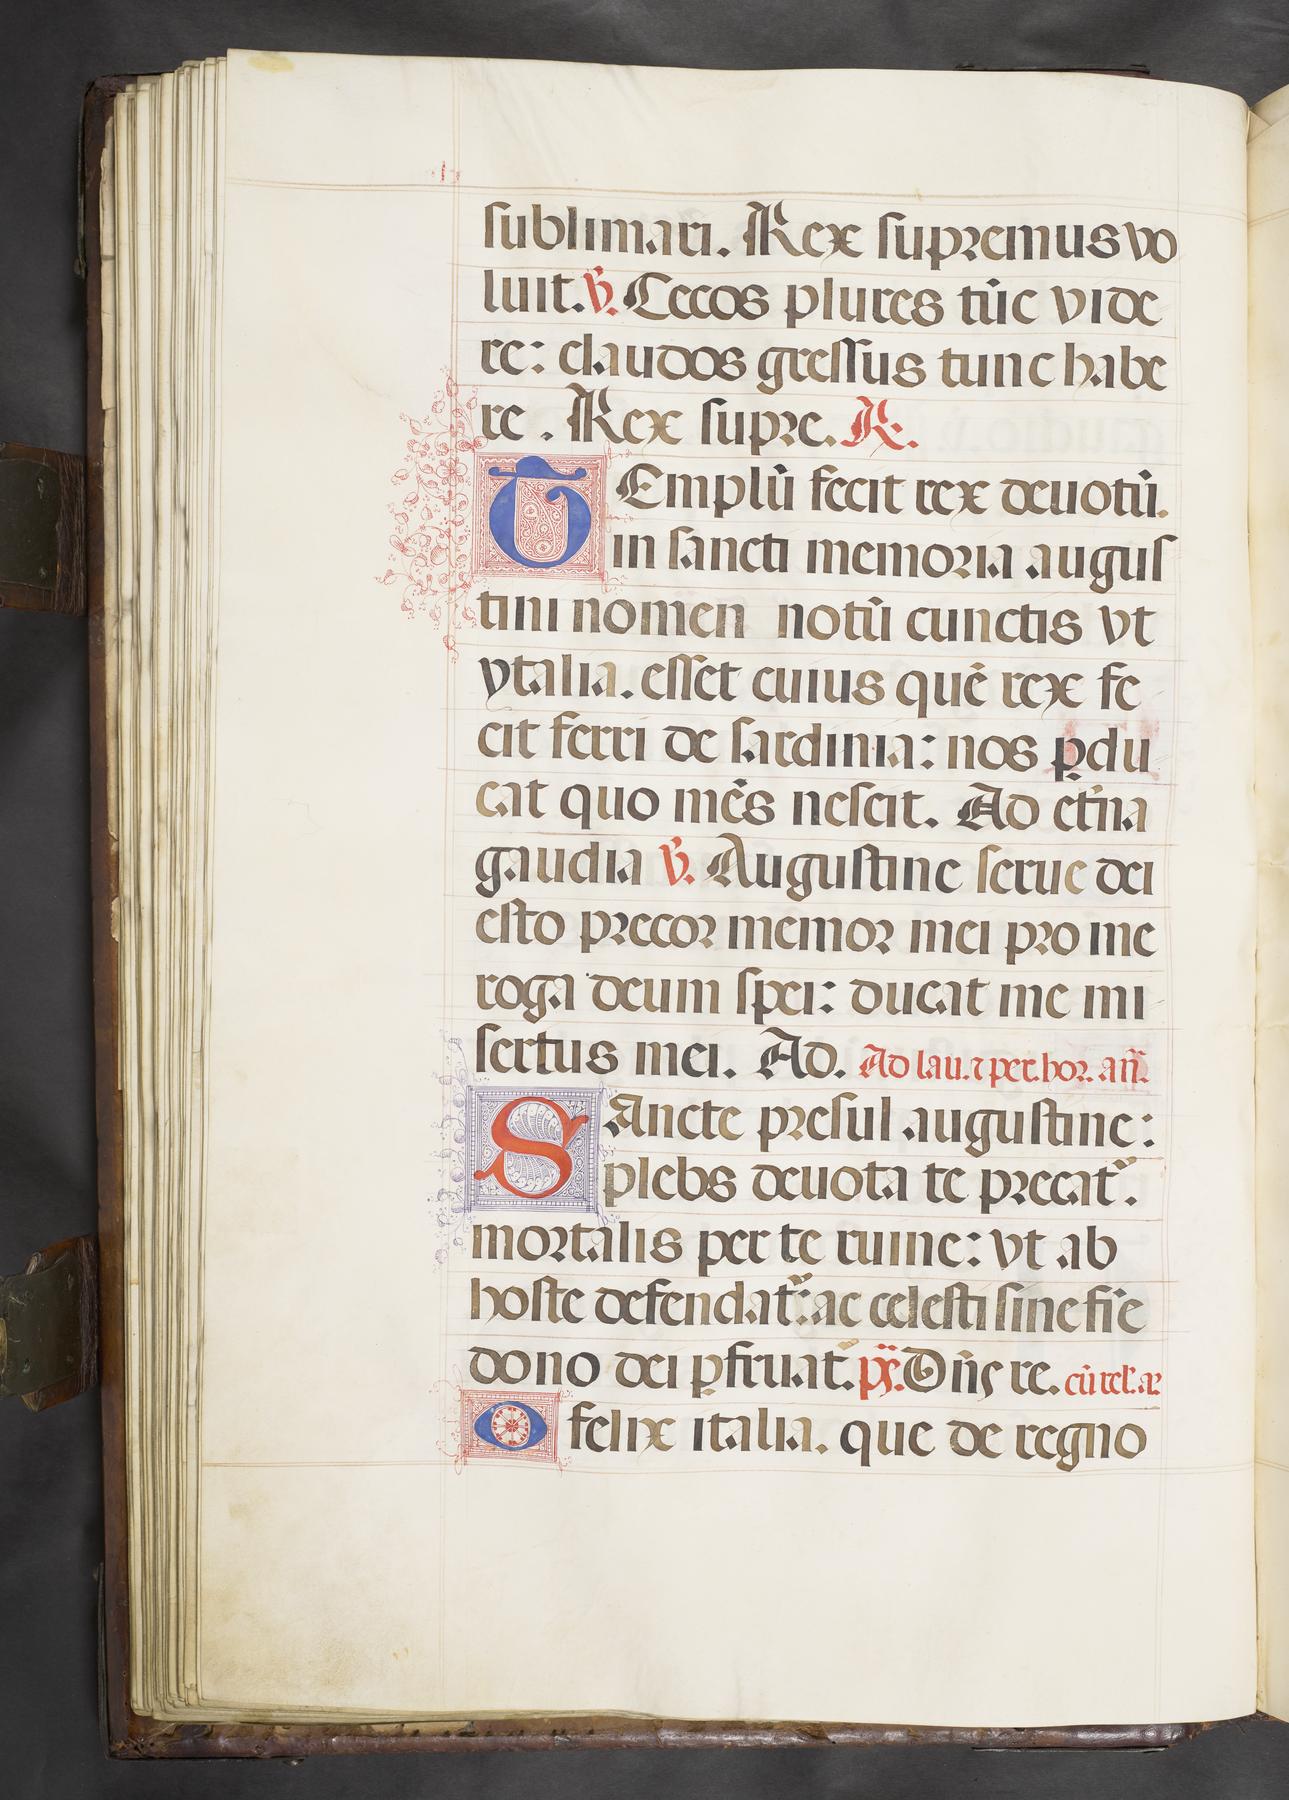 sublimari. Rex supremus vo
luit. ℣. Cecos plures tūc vide
re: claudos gressus tunc habe
re. Rex supre. ℟.
TEmplū fecit rex deuotū.
in sancti memoria augus
tini nomen notū cunctis vt
ytalia. esset cuius quē rex fe
cit ferri de sardinia: nos ꝑdu
cat quo mēs nescit. Ad et̄na
gaudia ℣. Augustine serue dei
esto precor memor mei pro me
roga deum spei: ducat me mi
sertus mei. Ad. Ad lau. ⁊ per. hor. an̄.
SAncte presul augustine:
plebs deuota te precat᷑.
mortalis per te ruine: vt ab
hoste defendat᷑: ac celesti sine fīe
dono dei ꝑfruat᷑. p̄s. Dn̄s re.
O felix italia. que de regno